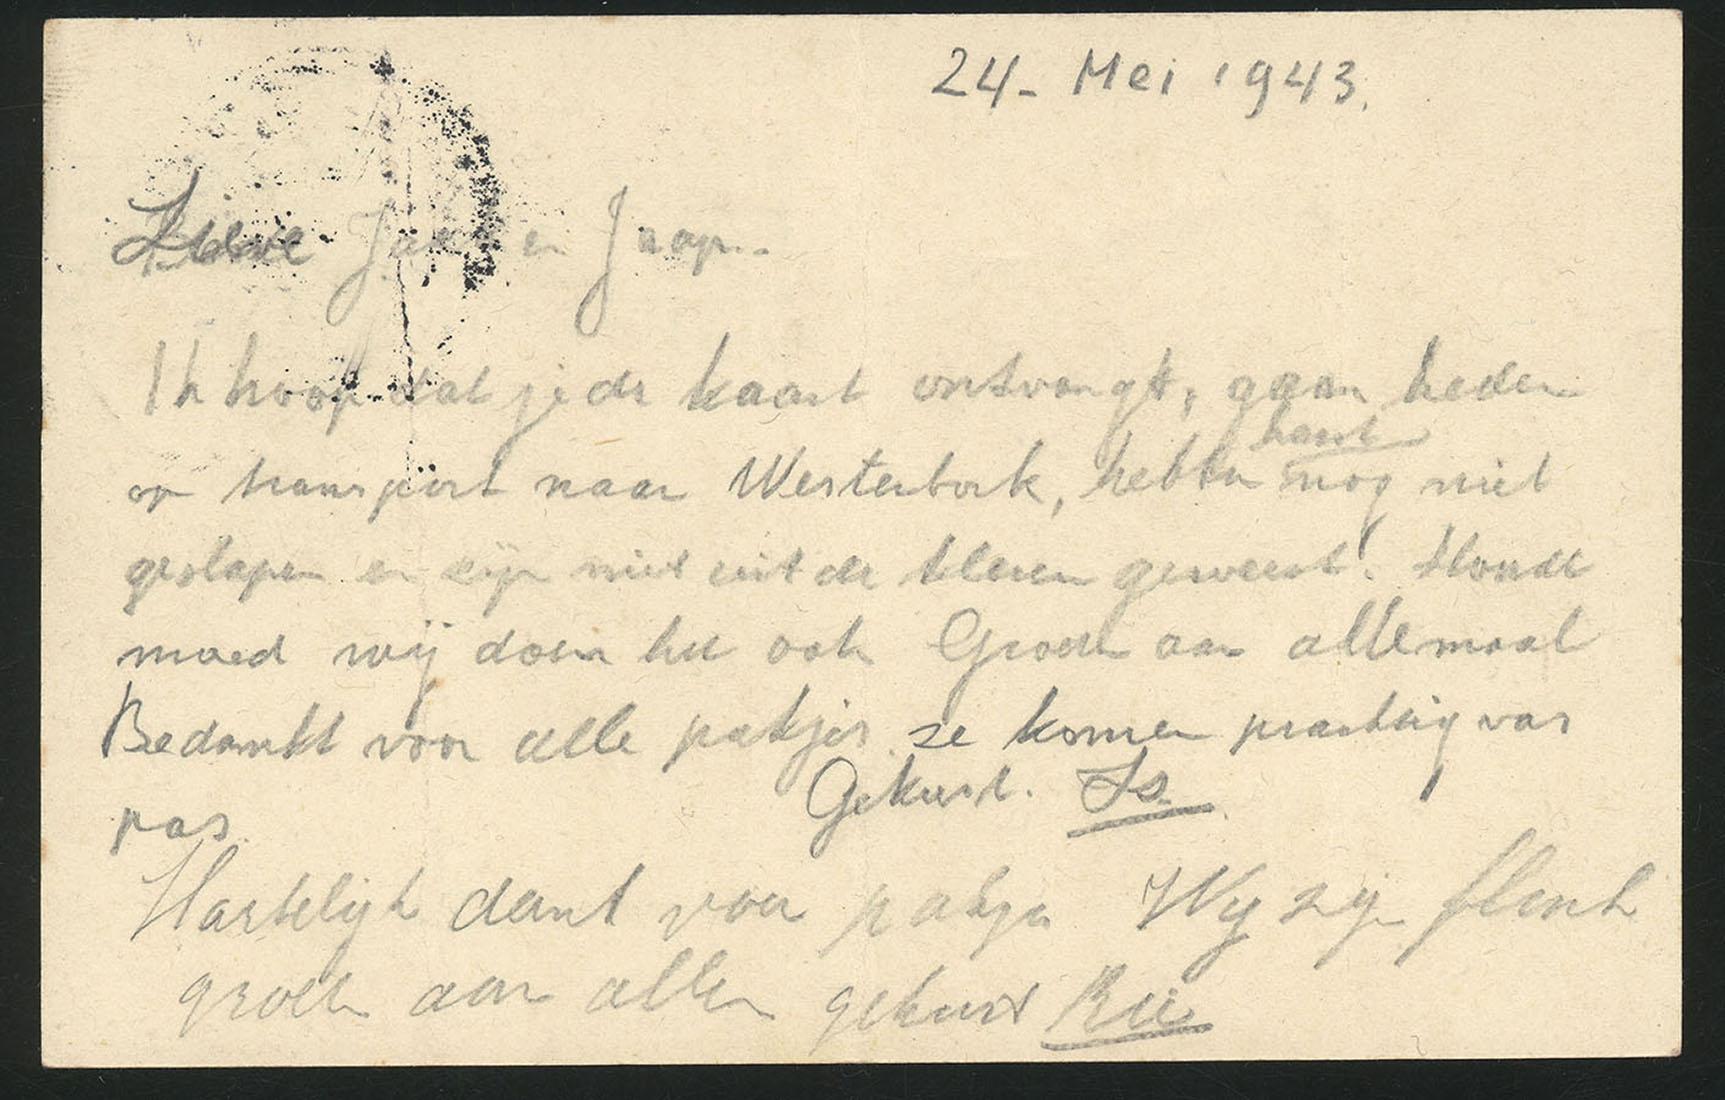 24- Mei 1943.
Lieve Jak en Jaap.
Ik hoop dat je de kaart ontvangt, gaan heden
haast
op transport naar Westerbork, hebben nog niet
geslapen en zijn niet uit de kleren geweest! Houdt
moed wij doen het ook Groeten aan allemaal
Bedankt voor alle pakjes ze komen prachtig van
pas Gekust. Is
Hartelijk dank voor pakje Wij zijn flink
groeten aan allen gekust Rie